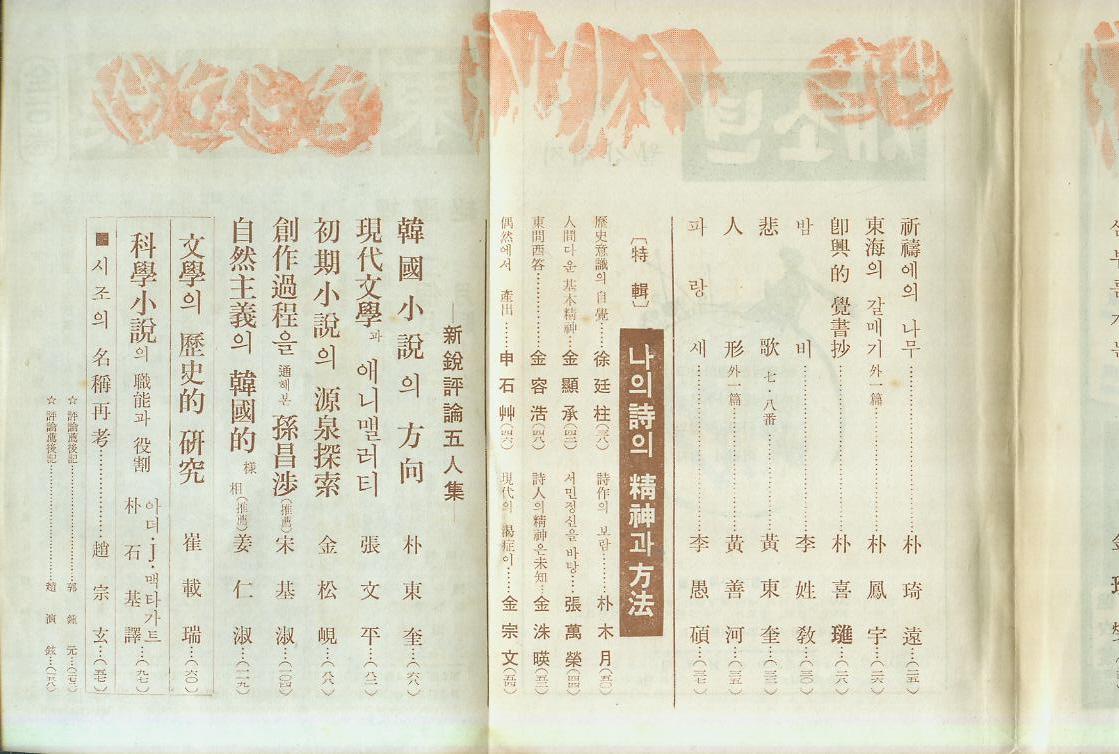 祈禱에의 나무……朴琦遠…(二五)
東海의 갈매기 外一篇……朴鳳宇…(二六)
卽興的 覺書抄……朴喜璡…(二八)
밤비……李姓敎…(三〇)
悲歌 七·八番……黃東奎…(三三)
人形 外一篇……黃善河…(三五)
파랑새……李愚碩…(三七)
〔特輯〕 나의 詩의 精神과 方法
歷史意識의 自覺……徐廷柱(三八)
詩作의 보람……朴木月(五〇)
人間다운 基本精神…金顯承(四二)
서민정신을 바탕…張萬榮(四四)
東問西答……金容浩(四八)
詩人의精神은未知…金洙暎(五二)
偶然에서 產出……申石艸(四六)
現代의 渴症이……金宗文(五四)
新銳評論五人集
韓國小說의 方向 朴東奎…(六八)
現代文學과 애니맬러티 張文平…(八二)
初期小說의 源泉探索 金松峴…(八八)
創作過程을 通해본 孫昌涉(推薦) 宋基淑…(一〇四)
自然主義의 韓國的 樣相(推薦) 姜仁淑…(一一九)
文學의 歷史的 硏究 崔載瑞…(六〇)
科學小說의 職能과 役割 아더·J·맥타가트 朴石基譯…(九七)
■시조의 名稱再考……趙宗玄…(五七)
☆評論薦後記……郭鍾元…
☆評論薦後記……趙演鉉…(一二八)